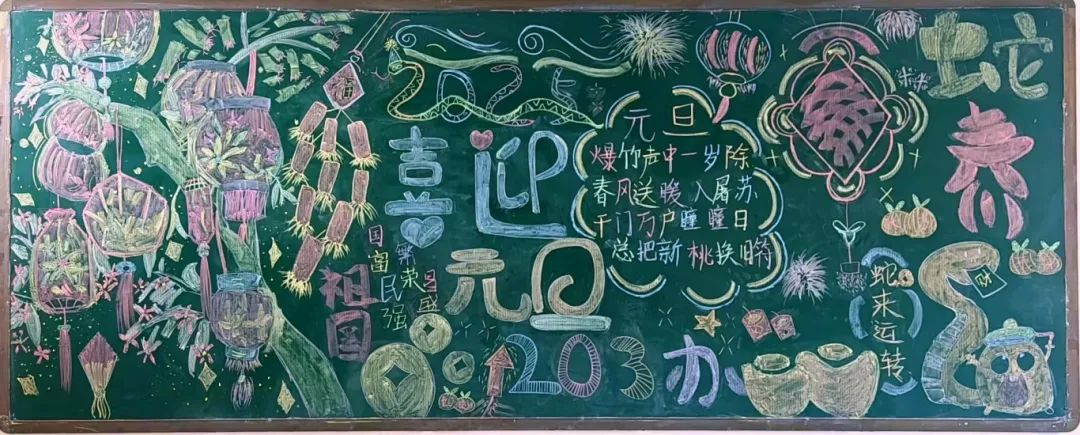 福
2025
喜迎
元旦
元旦
爆竹声中一岁除
春风送暖入屠苏
千门万户瞳瞳日
总把新桃换旧符
祖国
国富民强
繁荣昌盛
203办
蛇
蛇来运转
财